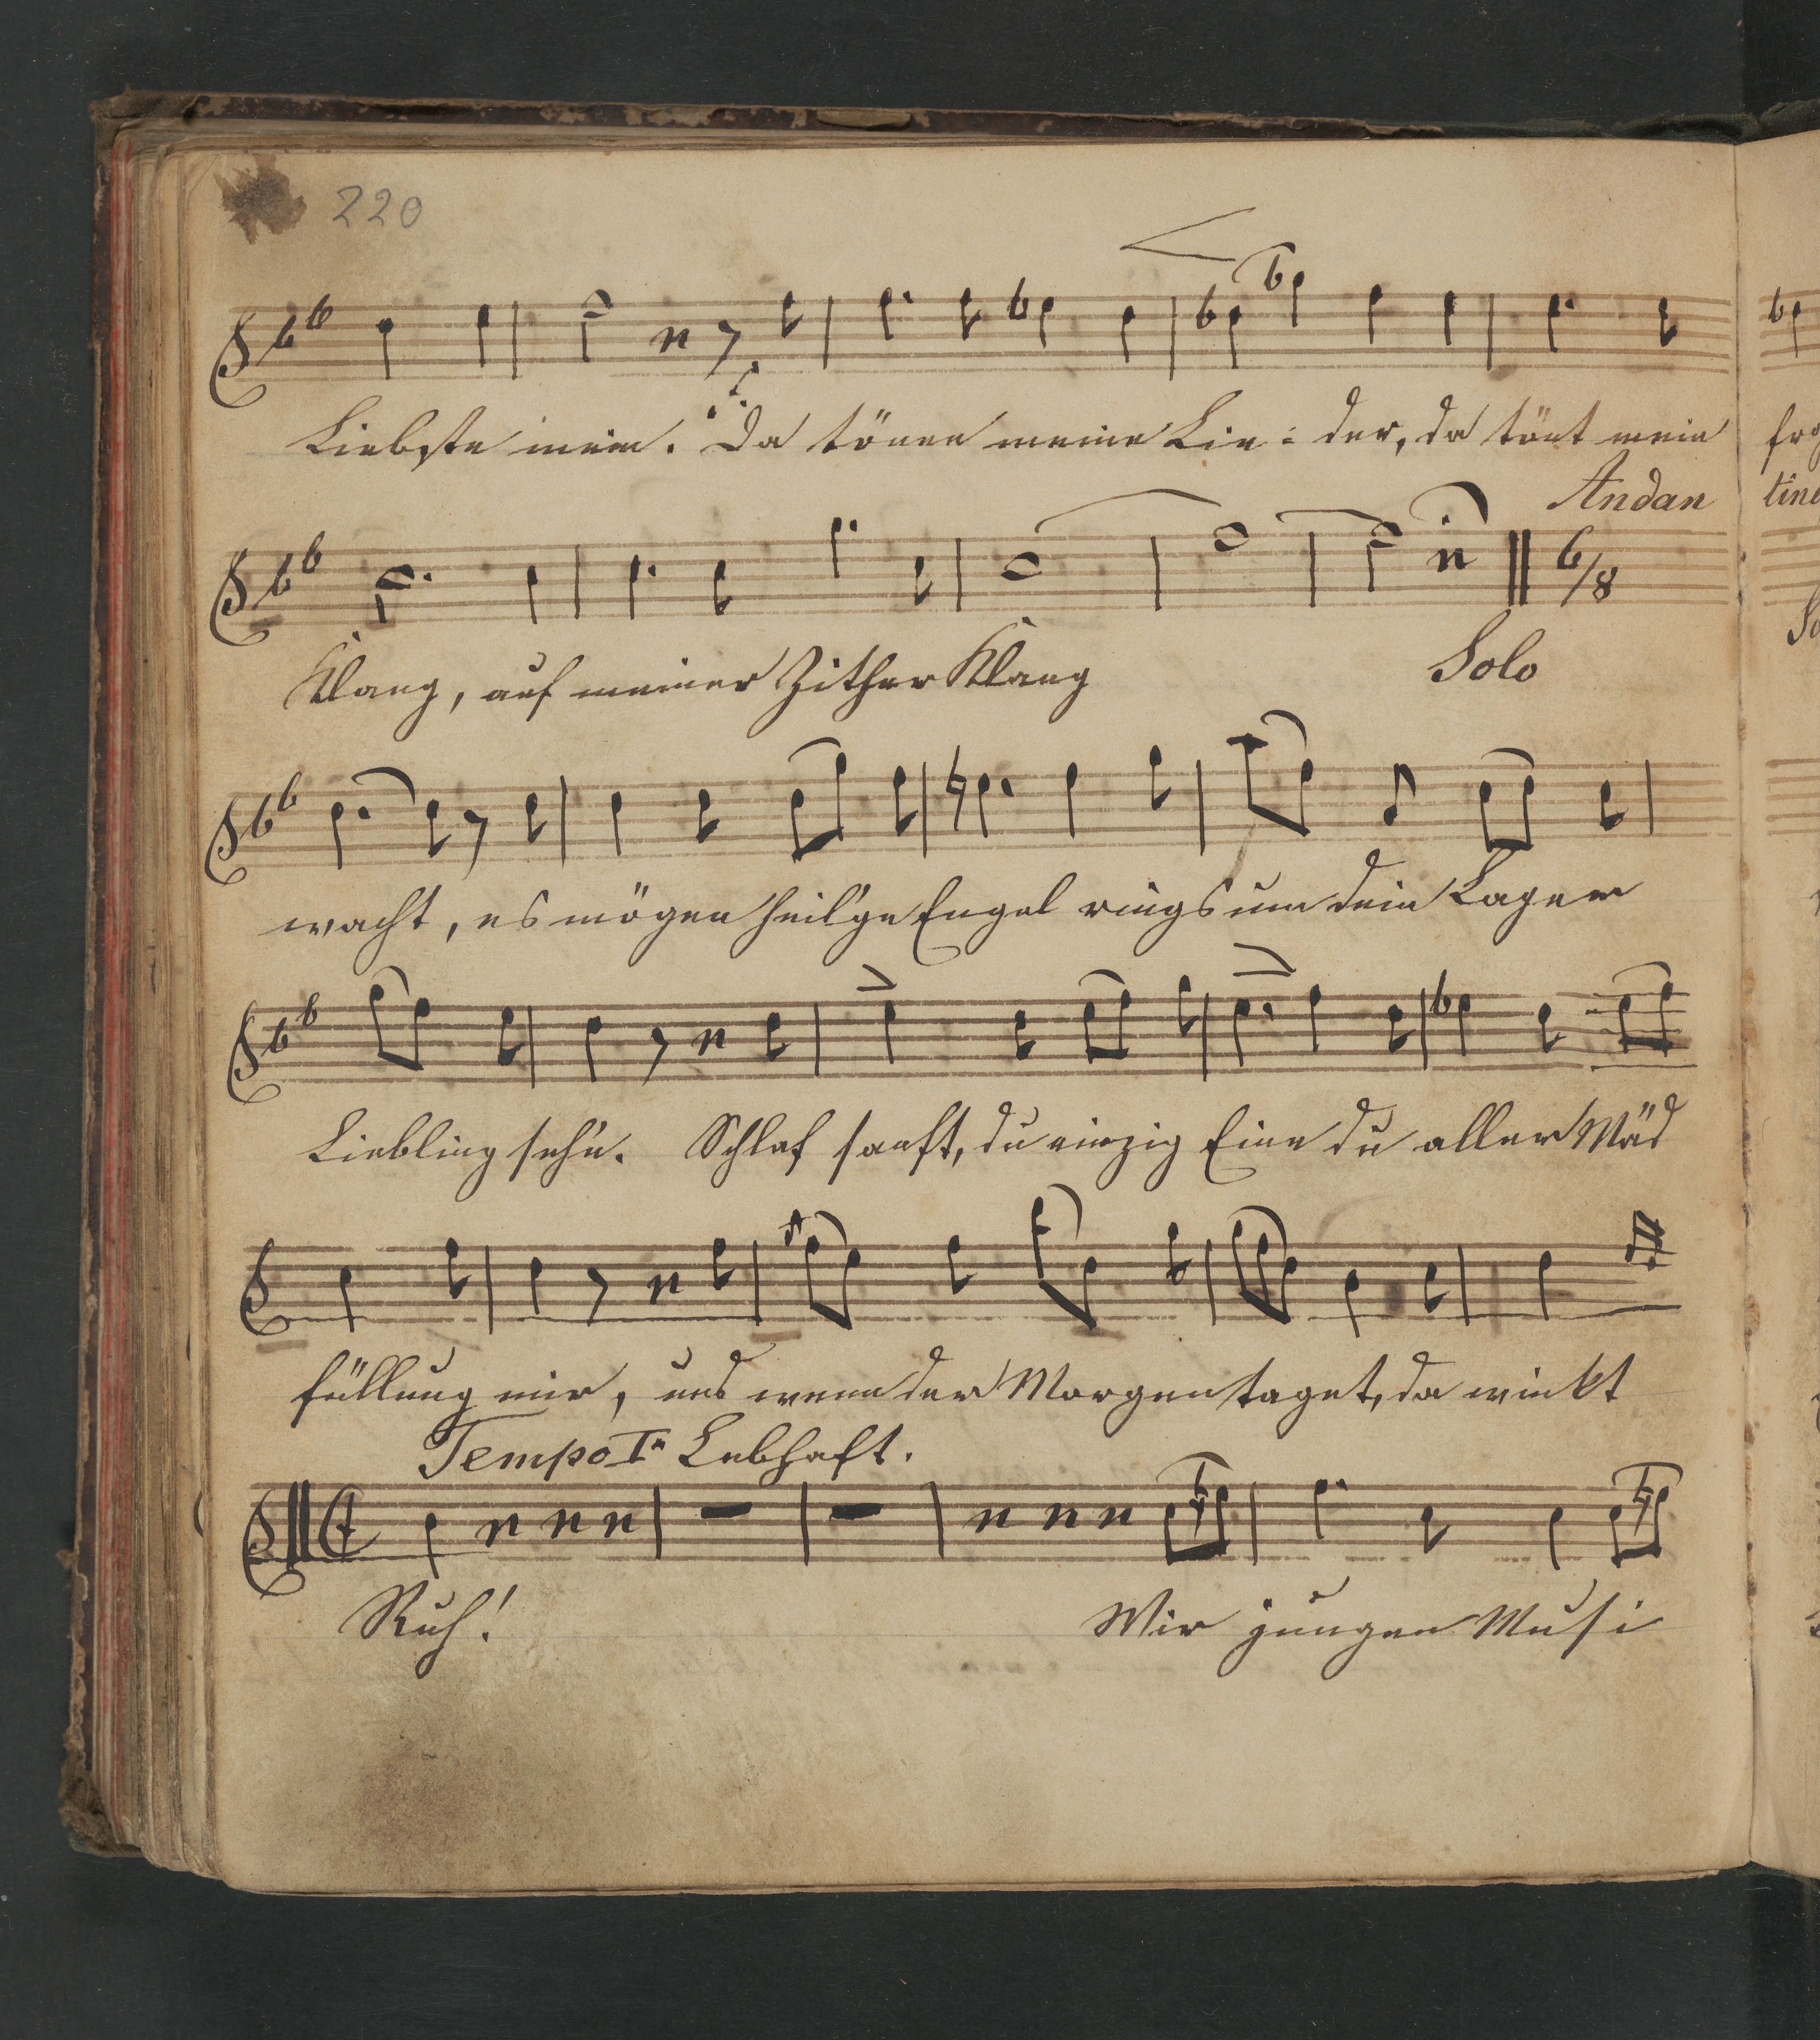 220
Liebste mein. Da tönen meine Lie- der, da tönt mein
Andan
Klang, auf meiner Zither Klang
6/8
Solo
wacht, es mögen heil'ge Engel rings um dein Lager
Liebling seh'n. Schlaf sanft, du einzig Eine du aller Mäd
füllung mir, und wenn der Morgen taget, da winkt
Tempo I^m Lebhaft.
Ruh!
Wir jungen Musi